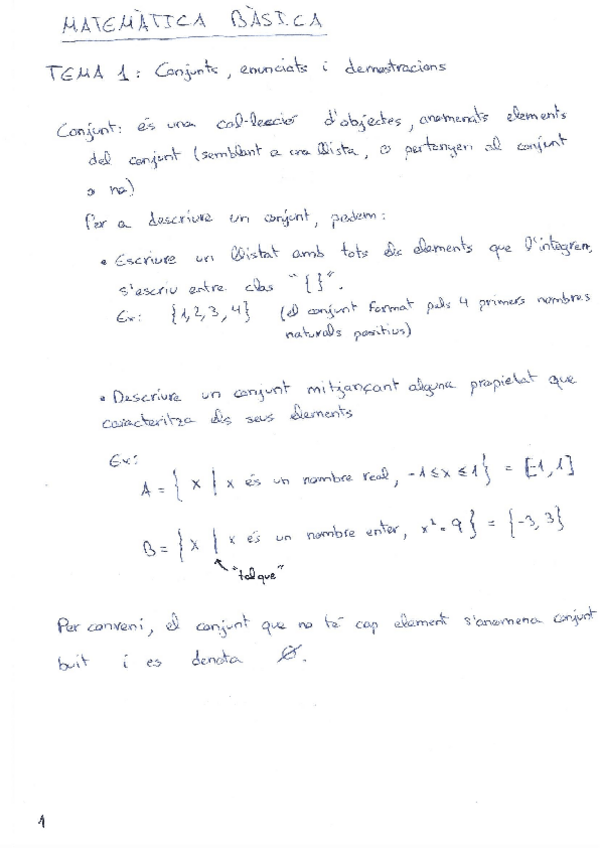 MATEMÀTICA BÀSICA
TEMA 1: Conjunts, enunciats i demostracions
Conjunt: és una col·lecció d'objectes, anomenats elements
del conjunt (semblant a una llista, o pertanyen al conjunt
o no)
Per a descriure un conjunt, podem:
• Escriure un llistat amb tots els elements que l'integren,
s'escriu entre claus "{}".
Ex: {1,2,3,4} (el conjunt format pels 4 primers nombres
naturals positius)
• Descriure un conjunt mitjançant alguna propietat que
caracteritza els seus elements
Ex:
A = {x | x és un nombre real, -1≤x≤1} = [-1,1]
B = {x | x és un nombre enter, x² = 9} = {-3,3}
"tal que"
Per conveni, el conjunt que no té cap element s'anomena conjunt
buit i es denota Ø.
1